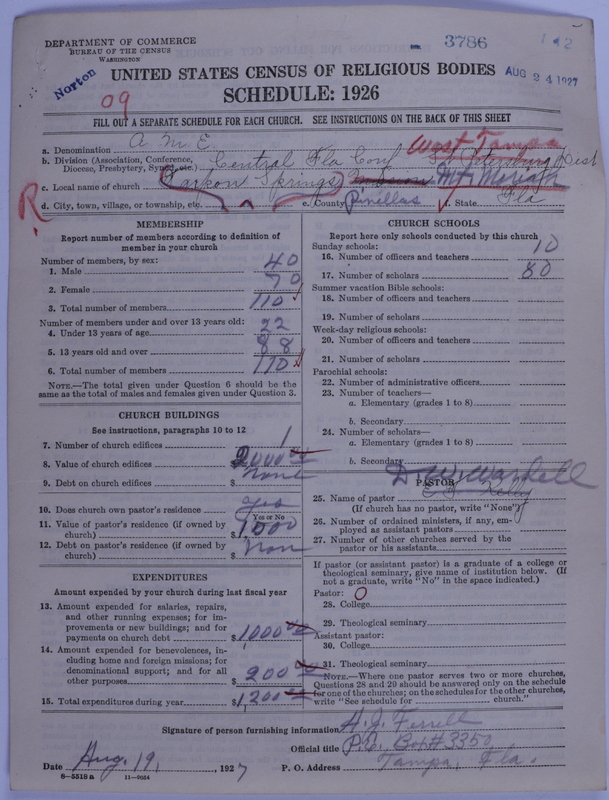 DEPARTMENT OF COMMERCE
BUREAU OF THE CENSUS
WASHINGTON
3786
1 2
Norton
09
UNITED STATES CENSUS OF RELIGIOUS BODIES
AUG 24 1927
SCHEDULE: 1926
FILL OUT A SEPARATE SCHEDULE FOR EACH CHURCH. SEE INSTRUCTIONS ON THE BACK OF THIS SHEET
a. Denomination A M E West Tampa
b. Division (Association, Conference, Diocese, Presbytery, Synod, etc.) Central Fla Conf St. Petersburg Dist
c. Local name of church Tarpon Springs Mt. Moriah
R
d. City, town, village, or township, etc. e. County Pinellas f. State Fla
MEMBERSHIP
Report number of members according to definition of member in your church
Number of members, by sex:
1. Male 40
2. Female 70
3. Total number of members 110
Number of members under and over 13 years old:
4. Under 13 years of age 22
5. 13 years old and over 88
6. Total number of members 110
NOTE.—The total given under Question 6 should be the same as the total of males and females given under Question 3.
CHURCH BUILDINGS
See instructions, paragraphs 10 to 12
7. Number of church edifices 1
8. Value of church edifices $2000 00
9. Debt on church edifices $ none
10. Does church own pastor's residence yes
Yes or No
11. Value of pastor's residence (if owned by church) $1,000
12. Debt on pastor's residence (if owned by church) $ none
EXPENDITURES
Amount expended by your church during last fiscal year
13. Amount expended for salaries, repairs, and other running expenses; for improvements or new buildings; and for payments on church debt $1000 00
14. Amount expended for benevolences, including home and foreign missions; for denominational support; and for all other purposes $200 00
15. Total expenditures during year $1,200 00
CHURCH SCHOOLS
Report here only schools conducted by this church
Sunday schools:
16. Number of officers and teachers 10
17. Number of scholars 80
Summer vacation Bible schools:
18. Number of officers and teachers
19. Number of scholars
Week-day religious schools:
20. Number of officers and teachers
21. Number of scholars
Parochial schools:
22. Number of administrative officers
23. Number of teachers—
a. Elementary (grades 1 to 8)
b. Secondary
24. Number of scholars—
a. Elementary (grades 1 to 8)
b. Secondary
D. W. Wardell
PASTOR
25. Name of pastor
(If church has no pastor, write "None")
26. Number of ordained ministers, if any, employed as assistant pastors
27. Number of other churches served by the pastor or his assistants
If pastor (or assistant pastor) is a graduate of a college or theological seminary, give name of institution below. (If not a graduate, write "No" in the space indicated.)
Pastor: O
28. College
29. Theological seminary
Assistant pastor:
30. College
31. Theological seminary
NOTE.—Where one pastor serves two or more churches, Questions 28 and 29 should be answered only on the schedule for one of the churches; on the schedules for the other churches, write "See schedule for church."
Signature of person furnishing information A. J. Ferrell
Official title P.O. Box # 3350
Date Aug. 19, 1927 P. O. Address Tampa, Fla.
8—5518 a 11—9054